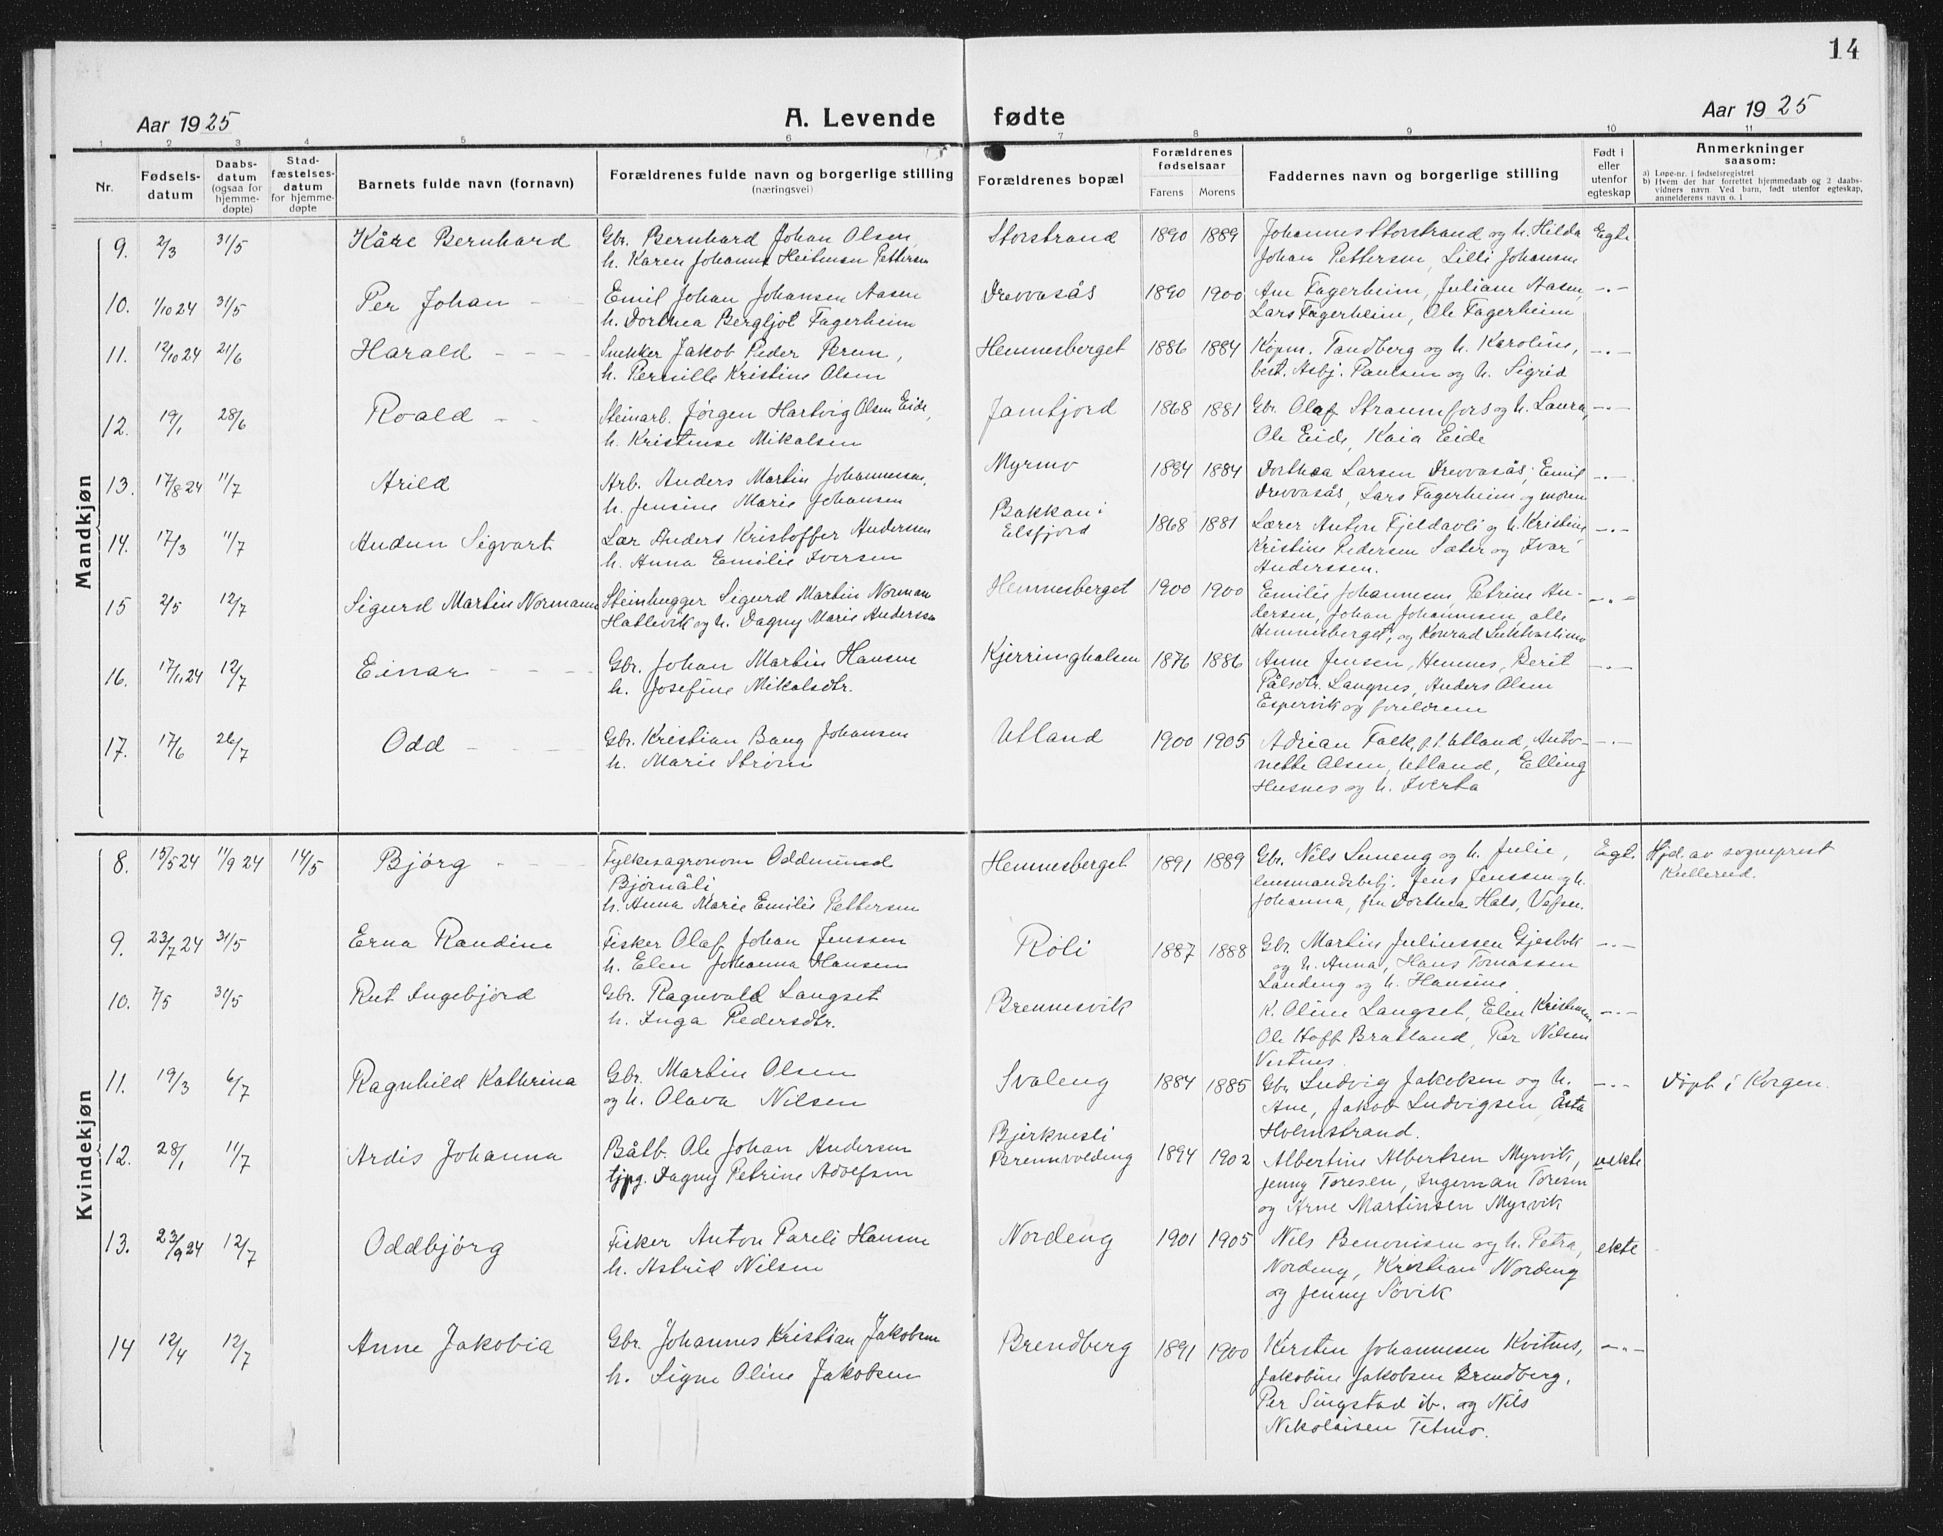 14
Aar 1925 A. Levende fødte Aar 1925
1 2 3 4 5 6 7 8 9 10 11
Nr. Fødsels-datum Daabs-datum (ogsaa for hjemme-døpte) Stad-fæstelses-datum for hjemme-døpte Barnets fulde navn (fornavn) Forældrenes fulde navn og borgerlige stilling (næringsvei) Forældrenes bopæl Forældrenes fødselsaar Farens Morens Faddernes navn og borgerlige stilling Født i eller utenfor egteskap Anmerkninger saasom: a) Løpe-nr. i fødselsregistret b) Hvem der har forrettet hjemmedaab og 2 daabsvidners navn. Ved barn, født utenfor egteskap, anmelderens navn o. l
Mandkjøn
9. 2/3 31/5 Kåre Bernhard Gbr. Bernhard Johan Olsen, Storstrand 1890 1889 Johannes Storstrand og h. Hilda Egte
h. Karen Johanna Heitman Pettersen Johan Pettersen, Lilli Johansen
10. 1/10 24 31/5 Per Johan Emil Johan Johansen Aasen Drevvasås 1890 1900 Ane Fagerheim, Juliane Aasen, -.-
h. Dorthea Bergljot Fagerheim Lars Fagerheim, Ole Fagerheim
11. 12/10 24 21/6 Harald Snekker Jakob Peder Prem, Hemnesberget 1886 1884 Kjøpm. Tandberg og h. Karoline, -.-
h. Pernille Kristine Olsen best. Asbj. Paulsen og h. Sigrid
12. 19/1 28/6 Roald Steinarb. Jørgen Hartvig Olsen Eide, Jamtjord 1868 1881 Gbr. Olaf Straumfors og h. Laura, -.-
h. Kristense Mikalsen Ole Eide, Kaia Eide
13. 17/8 24 11/7 Arild Arb. Anders Martin Johannessen, Myrmo 1884 1884 Dorthea Larsen Drevvasås, Emil -.-
h. Jensine Marie Johansen Drevvasås, Lars Fagerheim og moren
14. 17/3 11/7 Audun Sigvart Lær. Anders Kristoffer Anderssen Bakkan i Elsfjord 1868 1881 Lærer Anton Fjeldavli og h. Kristine -.-
h. Anna Emilie Iversen Kristine Pedersen Sæter og Ivar
Anderssen.
15 2/5 12/7 Sigurd Martin Normann Steinhugger Sigurd Martin Norman Hemnesberget 1900 1900 Emilie Johannesen, Petrine An- -.-
Hatlevik og h. Dagny Marie Anderssen dersen, Johan Johannesen, alle
Hemnesberget, og Konrad
16. 17/11 24 12/7 Einar Gbr. Johan Martin Hansen Kjerringhalsen 1876 1886 Anne Jensen, Hemnes, Berit -.-
h. Josefine Mikalsdtr. Pålsdtr. Langnes, Anders Olsen
Espervik og foreldrene
17. 17/6 26/7 Odd Gbr. Kristian Bang Johansen Utland 1900 1905 Adrian Falk, p.t. Utland, Anto- -.-
h. Marie Strøm nette Olsen, Utland, Elling
Husnes og h. Iverta
Kvindekjøn
8. 15/5 24 11/9 24 14/5 Bjørg Fylkesagronom Oddmund Hemnesberget 1891 1889 Gbr. Nils Luneng og h. Julie, Egt. Hjd. av sogneprest
Bjørnåli lensmandsbetj. Jens Jenssen og h. Kullerud.
h. Anna Marie Emilie Pettersen Johanna, fru Dorthea Hals, Vefsn.
9. 23/7 24 31/5 Erna Randine Fisker Olaf Johan Jenssen Røli 1887 1888 Gbr. Martin Juliussen Gjesbak -.-
h. Elen Johanna Hansen og h. Anna, Hans Tomassen
Landeng og h. Hansine
10. 7/5 31/5 Rut Ingebjørd Gbr. Ragnvald Langset Brennesvik K. Oline Langset, Elen Kristensen -.-
h. Inga Pedersdtr. Ole Hoff Bratland, Per Nilsen
Vestnes.
11. 19/3 6/7 Ragnhild Kathrina Gbr. Martin Olsen Svaleng 1884 1885 Gbr. Ludvig Jakobsen og h. -.- Døpt i Korgen.
og h. Olava Nilsen Ane, Jakob Ludvigsen, Åsta
Holmstrand.
12. 28/1 11/7 Ardis Johanna Båtb. Ole Johan Andersen Bjerknesli 1894 1902 Albertine Albertsen Myrvik, uekte
tjpg. Dagny Petrine Adolfsen Brennvolding Jenny Toresen, Ingeman Toresen
og Arne Martinsen Myrvik
13. 23/9 24 12/7 Oddbjørg Fisker Anton Pareli Hansen Nordeng 1901 1905 Nils Benonisen og h. Petra, ekte
h. Astrid Nilsen Nordeng, Kristian Nordeng
og Jenny Søvik
14 12/4 12/7 Anne Jakobia Gbr. Johannes Kristian Jakobsen Brendberg 1891 1900 Kirsten Johannesen Kvitnes, -.-
h. Signe Oline Jakobsen Jakobine Jakobsen Brendberg,
Per Singstad ib. og Nils
Nikolaisen Tetmo.